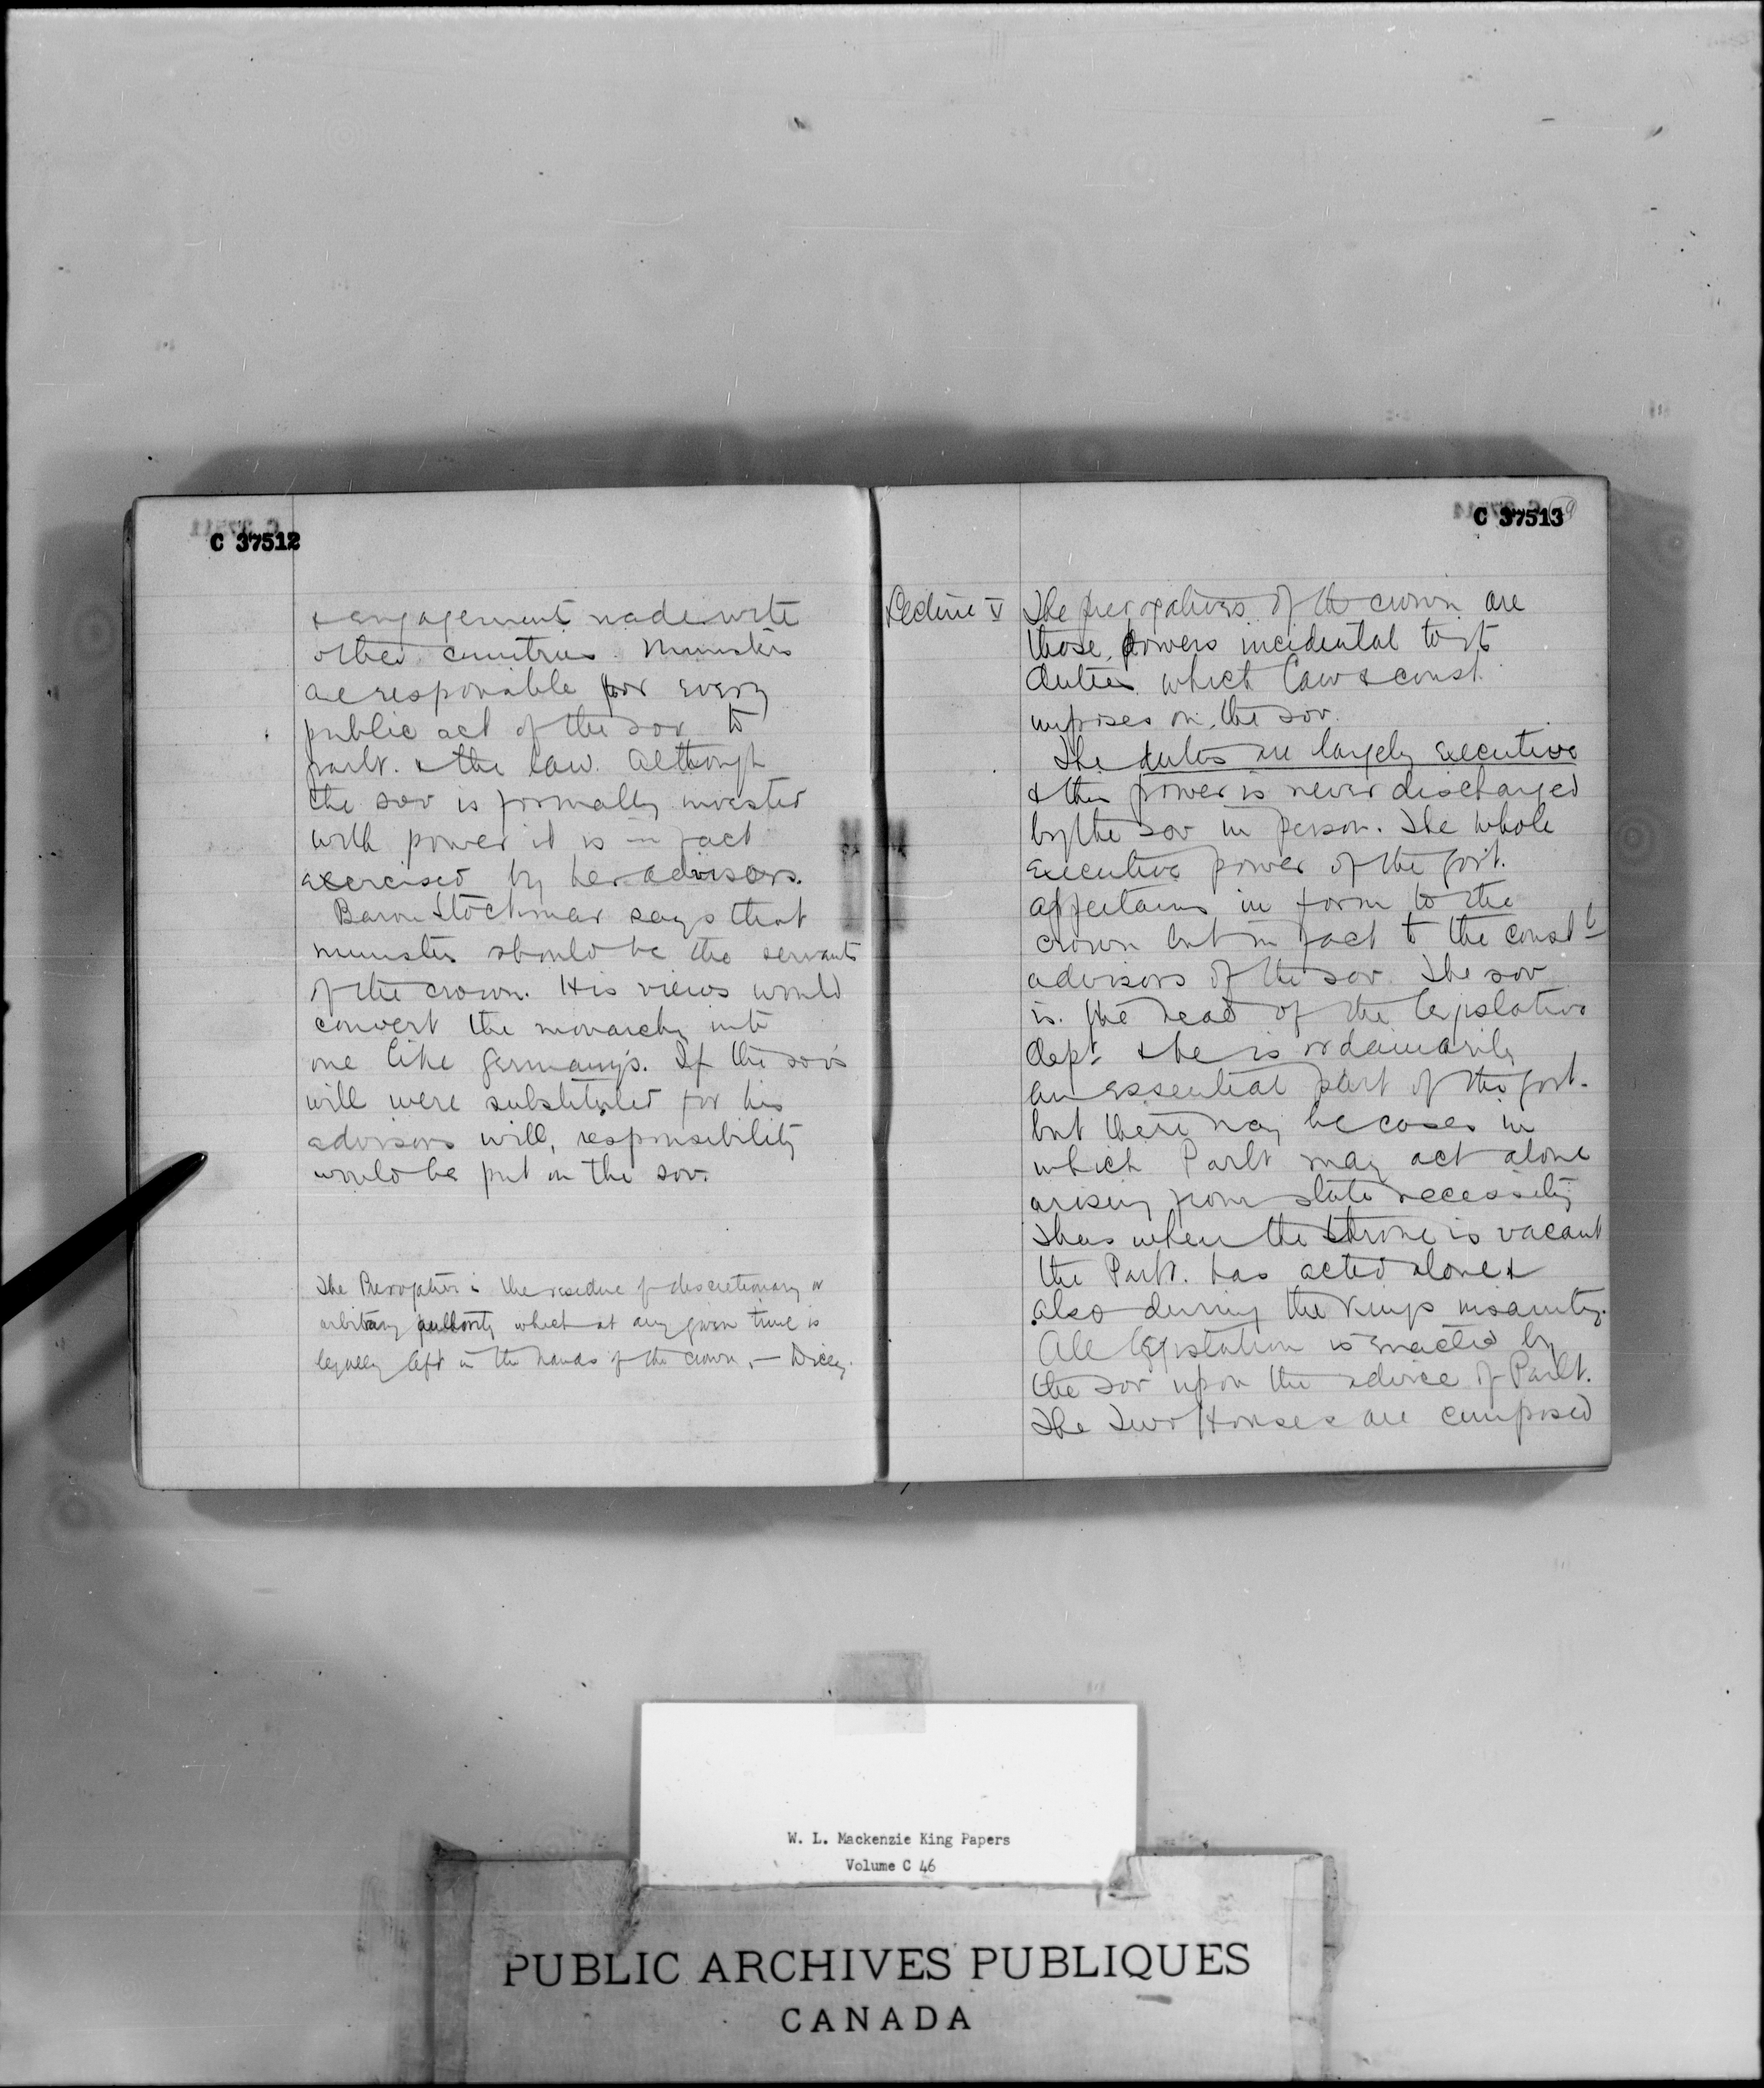 C 37512
& engagements made with
other countries. Ministers
are responsible for every
public act of the sov. to
parlt. & the law. Although
the sov is formally invested
with power it is in fact
exercised by her advisors.
Baron Stockmar says that
ministers should be the servants
of the crown. His views would
convert the monarchy into
one like Germany's. If the sov's
will were substituted for his
advisors will, responsibility
would be put on the sov.
The Prerogative is the residue of discretionary or
arbitrary authority which at any given time is
legally left in the hands of the crown, — Dicey.
C 37513
Lecture V
The prerogatives of the crown are
those powers incidental to
duties which law & const.
imposes on the sov.
The duties are largely executive
& this power is never discharged
by the sov in person. The whole
executive power of the govt.
appertains in form to the
crown but in fact to the constl
advisors of the sov. The sov
is the head of the legislative
dept. & he is ordainarily
an essential part of the govt.
but there may be cases in
which Parlt may act alone
arising from state necessity
Thus when the throne is vacant
the Parlt. has acted alone &
also during the kings insanity.
All legislation is enacted by
the sov upon the advice of Parlt.
The two Houses are composed
W. L. Mackenzie King Papers
Volume C 46
PUBLIC ARCHIVES PUBLIQUES
CANADA